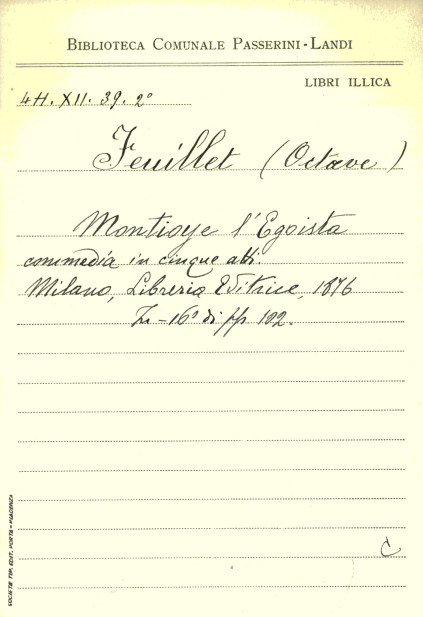 BIBLIOTECA COMUNALE PASSERINI-LANDI
LIBRI ILLICA
4H. XII. 39. 2º
Feuillet (Octave)
Montioye l'Egoista
commedia in cinque atti
Milano, Libreria Editrice, 1876
In-16º di pp 102.
SOCIETÀ TIP. EDIT. PORTA-PIACENZA
C